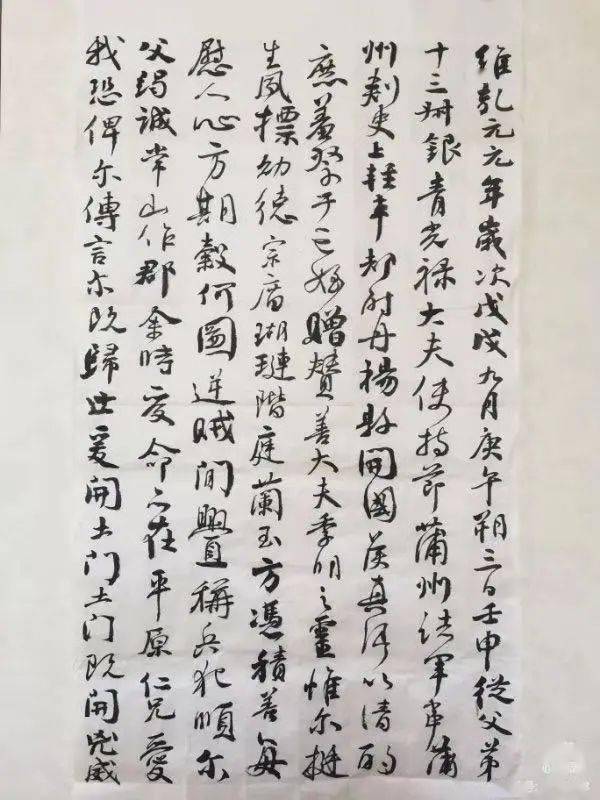 維乾元元年歲次戊戌九月庚午朔三日壬申從父弟
十三叔銀青光祿大夫使持節蒲州諸軍事蒲
州刺史上輕車都尉丹楊縣開國侯真卿以清酌
庶羞祭于亡姪贈贊善大夫季明之靈惟爾挺
生夙標幼德宗廟瑚璉階庭蘭玉方憑積善每
慰人心方期戩穀何圖逆賊閒釁稱兵犯順爾
父竭誠常山作郡余時受命亦在平原仁兄愛
我恐俾爾傳言爾既歸止爰開土門土門既開兇威